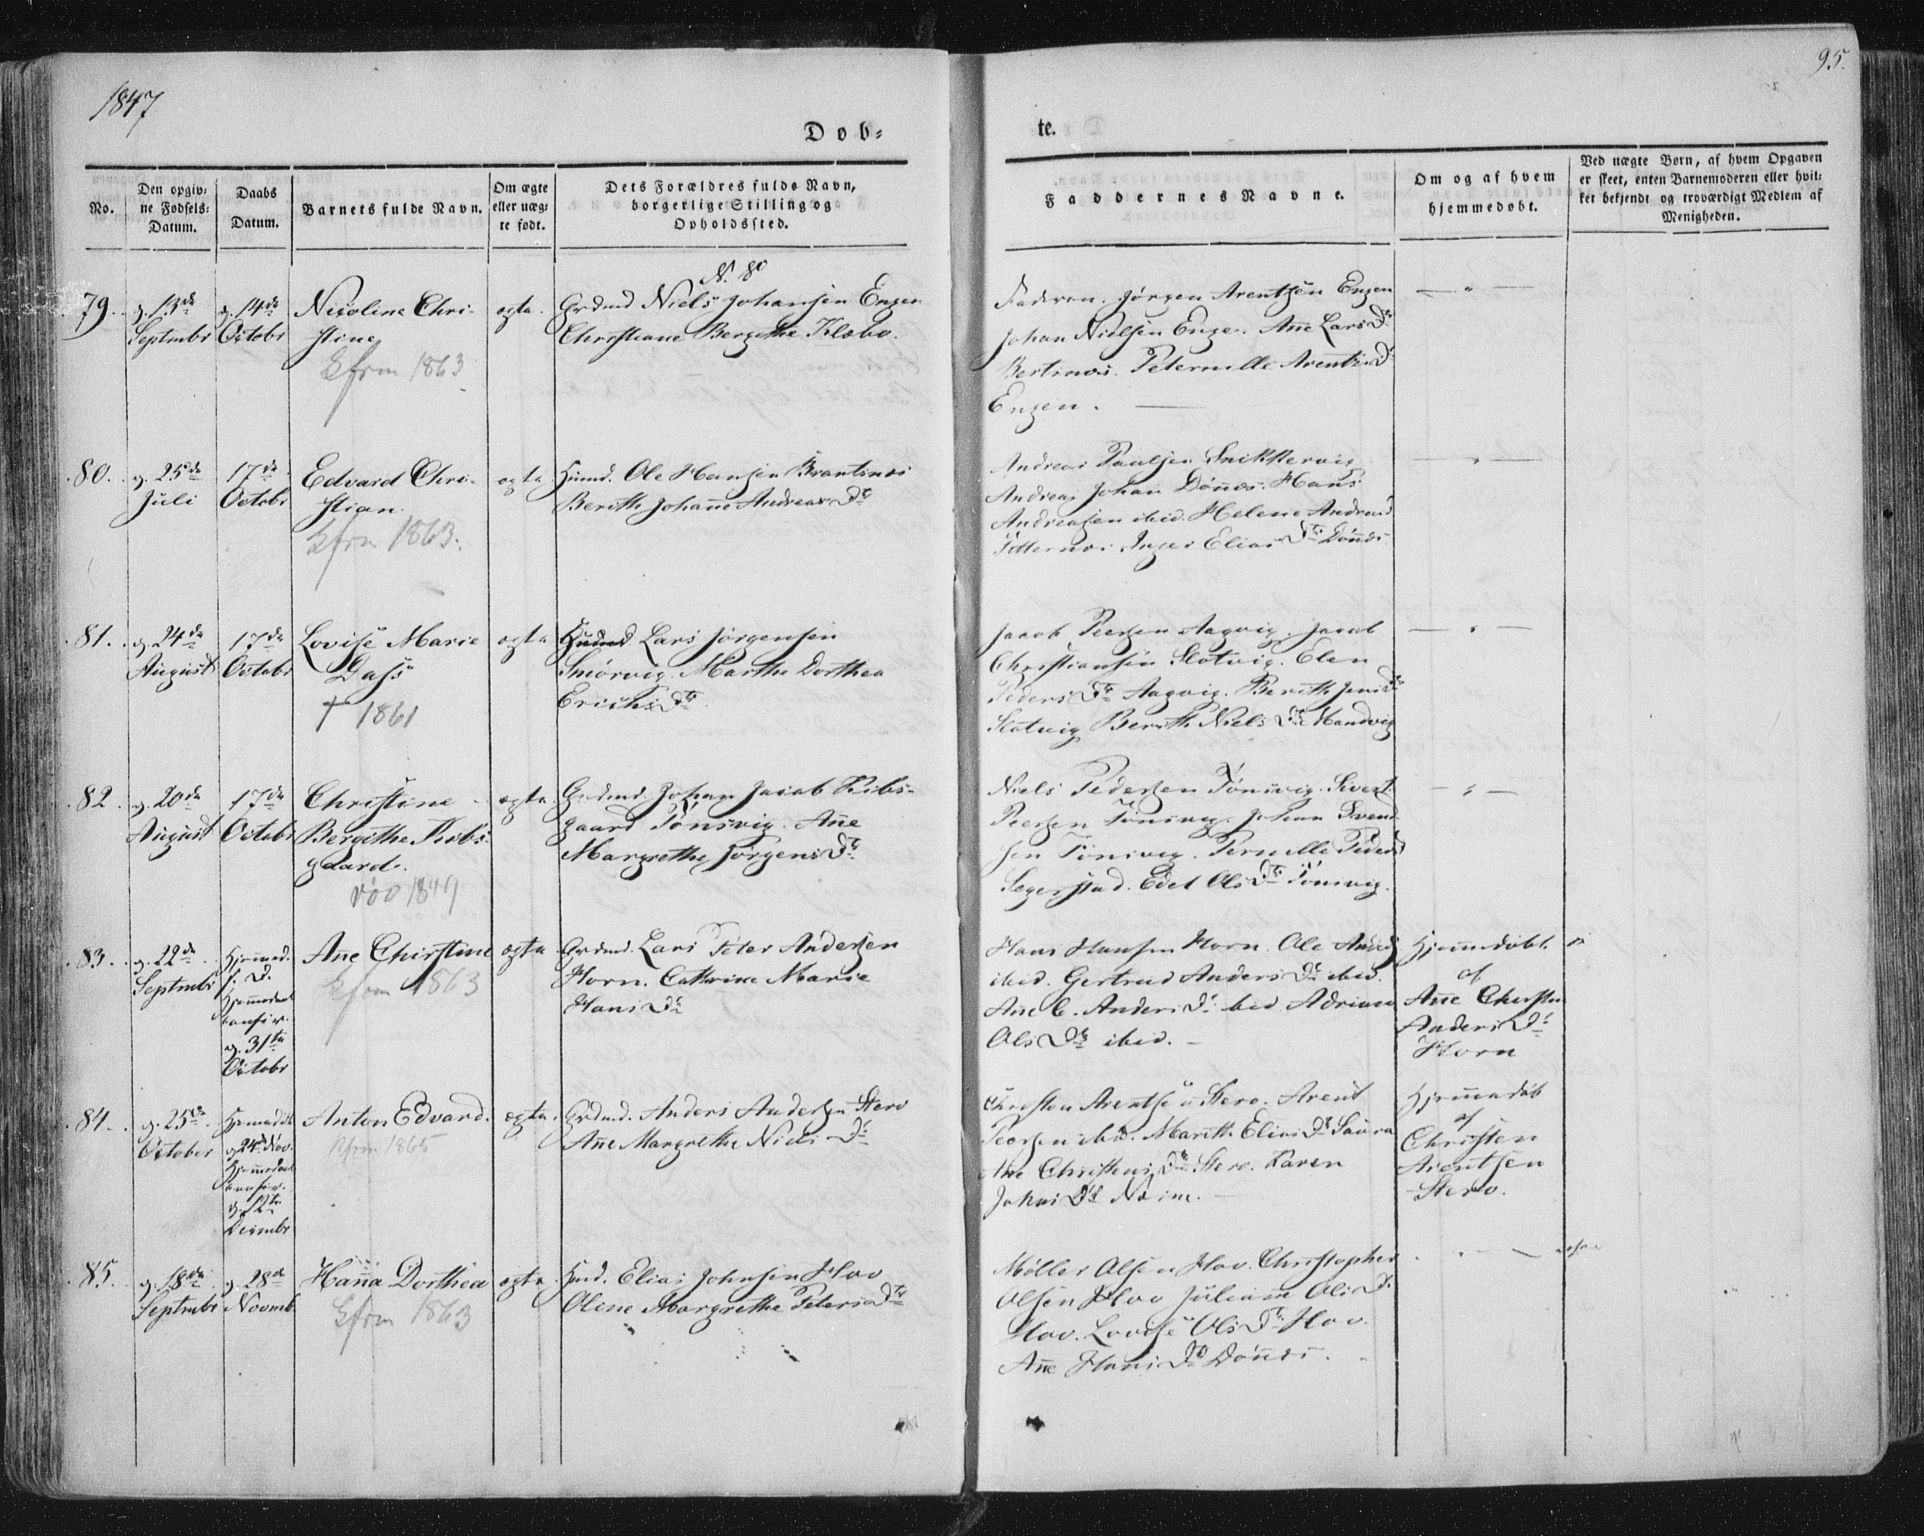 1847
95.
Døb=
te.
No.
Den opgiv=
ne Fødsels=
Datum.
Daabs
Datum.
Barnets fulde Navn.
Om ægte
eller uæg=
te født.
Dets Forældres fulde Navn,
borgerlige Stilling og
Opholdssted.
Faddernes Navne.
Om og af hvem
hjemmedøbt.
Ved uægte Børn, af hvem Opgaven
er skeet, enten Barnemoderen eller hvil=
ket bekjendt og troværdigt Medlem af
Menigheden.
79.
d. 13de
Septmbr
d. 14de
Octobr
Nicoline Chri-
stine
Kfrm 1863
ægte.
N. 80
Grdmd Niels Johansen Engen
Christiane Bergethe Klæbo.
Faderen. Jørgen Arentsen Engen
Johan Nielsen Enge. Ane Lars Dr
Petternille Arents D
Engen.
80.
d. 25de
Juli
17de
Octobr
Edvard Chri-
stian.
Kfrm 1863.
ægte
Huusmd. Ole Hansen
Berith Johane Andreas Dr
Andreas Paulsen
Andreas Johan Dønæs. Hans
Andreasen ibid. Helene Andreas
Inger Elias Dr Dønæs.
81.
d. 24de
August
17de
Octobr
Lovise Marie
Dass
† 1861
ægte
Lars Jørgensen
Smørvig. Marthe Dorthea
Erichs Dr
Jacob Peersen Aagvig. Jacob
Christiansen Slotvig. Elen
Peders Dr Aagvig. Berith Jens Dr
Slotvig Berith Niels Dr Mandvig
82.
d. 20de
August
17de
Octobr
Christine
Bergithe Kibs-
gaard.
død 1849
ægte
Grdmd. Johan Jacob Kibs-
gaard Tønsvig. Ane
Margrethe Jørgens Dr
Niels Pedersen Tønsvig. Sivert
Peersen Tønsvig. Johan Svend
sen Tønsvig. Pernille Peders
Segerstad. Edel Ols Dr Tønsvig.
83.
d. 22de
Septmbr
Hjemmed.
s. D.
d. 31te
Octobr
Ane Christine
Kfrm 1863
ægte
Grdmd. Lars Peter Andersen
Horn. Cathrine Marie
Hans Dr
Hans Hansen Horn. Ole Anders
ibid. Gertrud Anders Dr ibid.
Ane C. Anders Dr ibid Adriane
Ols Dr ibid.
Hjemmedøbt
af
Ane Christine
Anders Dr
Horn
84.
d. 25de
October
Hjemmedøbt
d. 24de Nov.
d. 12te
Decmbr
Anton Edvard.
Kfrm 1865
ægte.
Grdmd. Anders Andersen Stero
Ane Margrethe Niels Dr
Christen Arentsen Stero. Arent
Peersen ibd. Marith Elias Dr Saura
Ane Christens Dr Stero. Karen
Johns Dr
Hjemmedøb
af
Christen
Arentsen
Stero.
85.
d. 18de
Septmbr
d. 28de
Novmb
Hana Dorthea
Kfrm 1863
ægte
Hmd. Elias Johnsen Hov
Olene Margrethe Peters Dr
Møller Olsen Hov. Christopher
Olsen Hov Juliane Ols D
Hov. Lovise Ols Dr Hov.
Ane Hans Dr Dønæs.